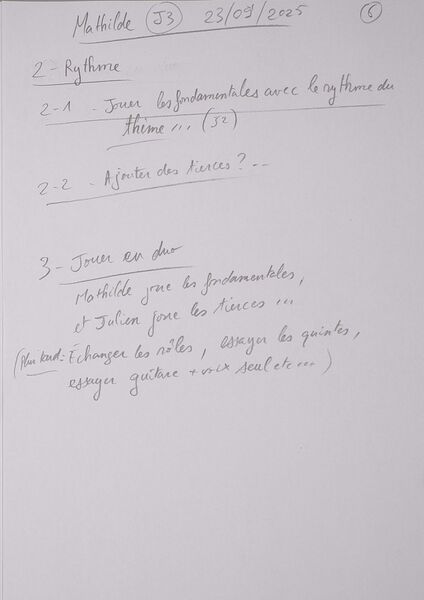 Mathilde J3 23/09/2025 6
2 - Rythme
2-1 - Jouer les fondamentales avec le rythme du
thème ... (J2)
2-2 - Ajouter des tierces ? ...
3 - Jouer en duo
Mathilde joue les fondamentales,
et Julien joue les tierces ...
(Plus tard : Échanger les rôles, essayer les quintes,
essayer guitare + voix seul etc ... )